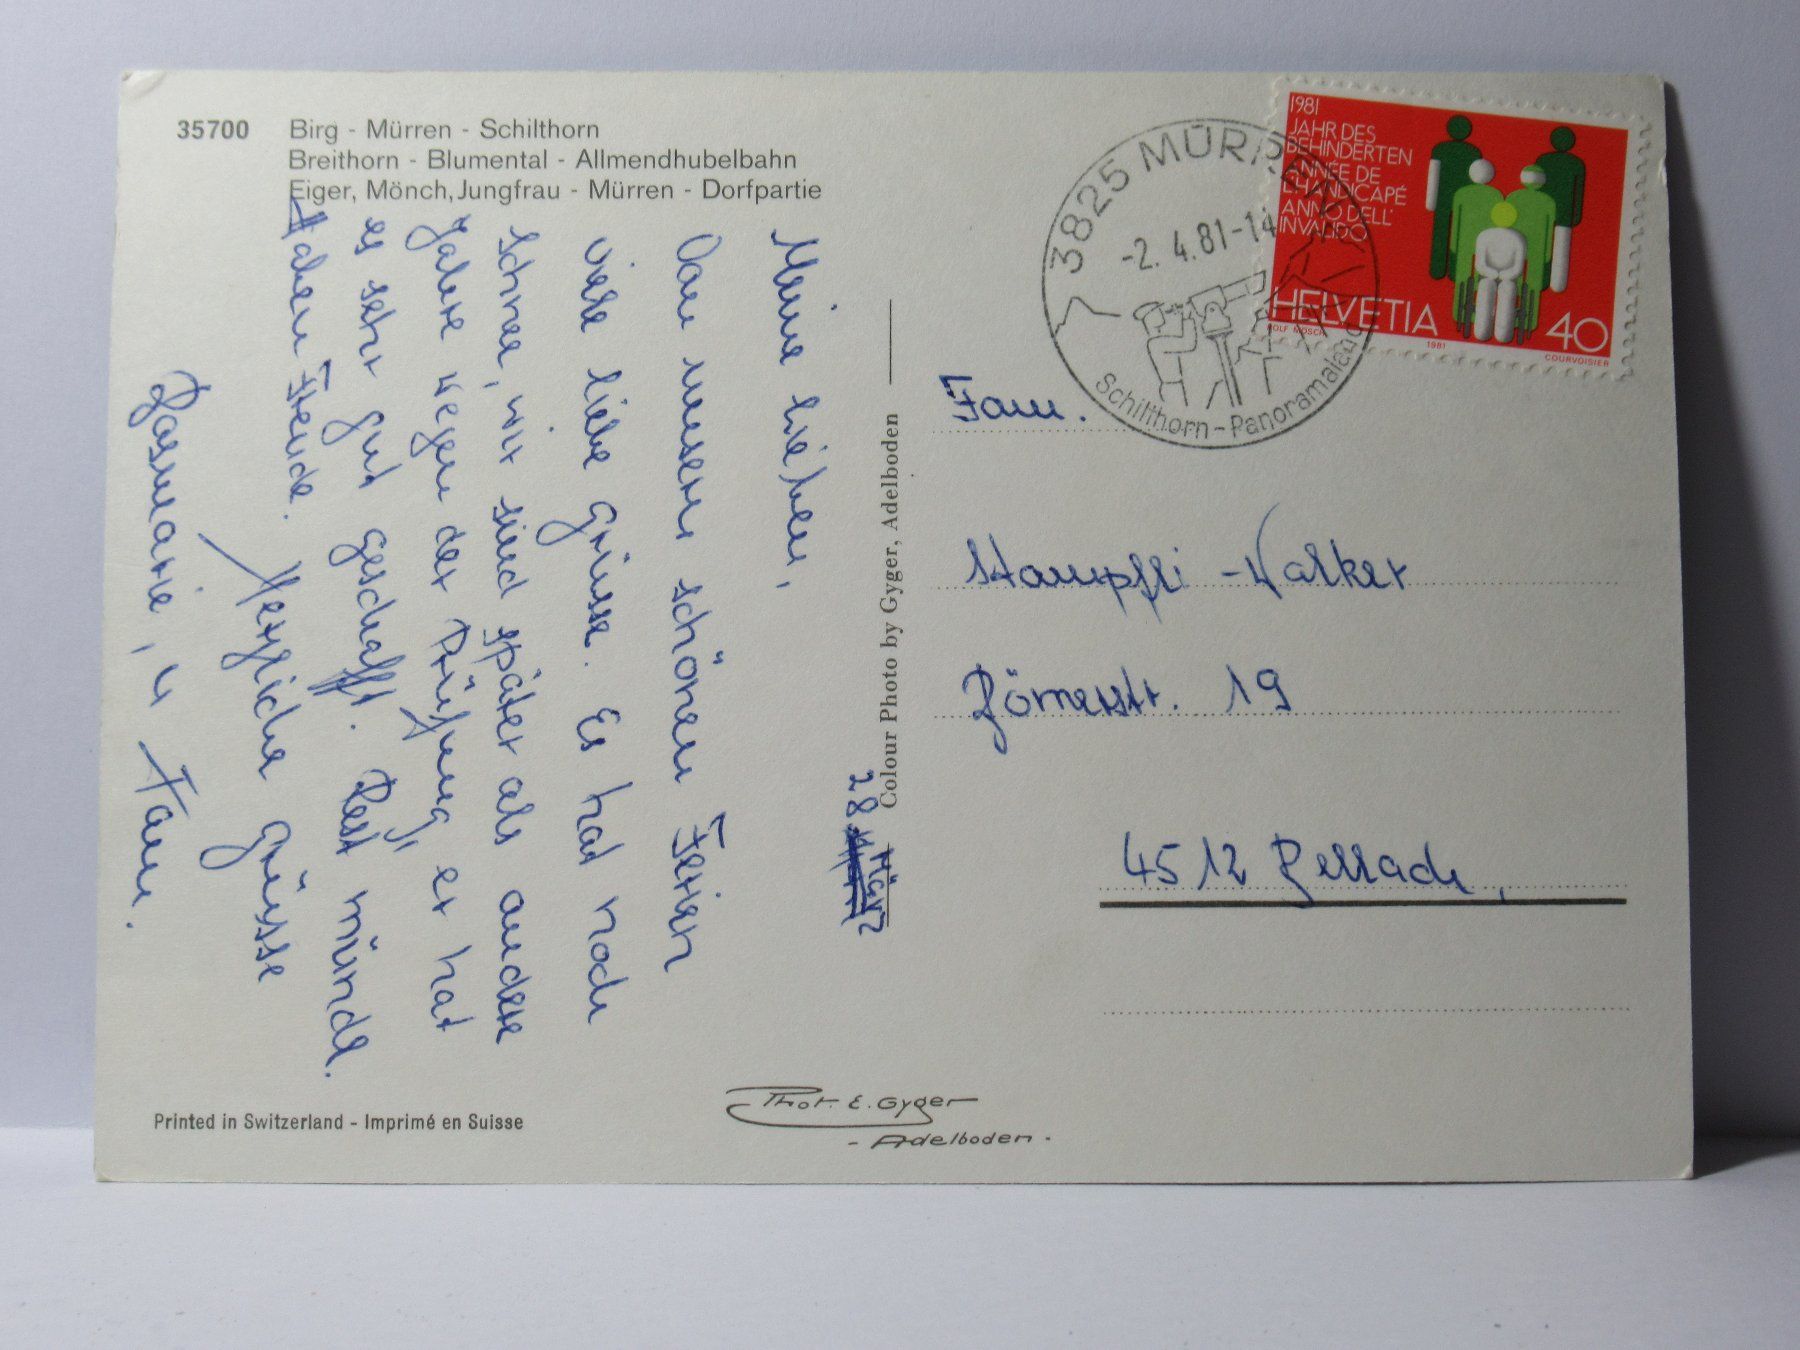 35700 Birg - Mürren - Schilthorn
Breithorn - Blumental - Allmendhubelbahn
Eiger, Mönch, Jungfrau - Mürren - Dorfpartie
28. März
Meine lieben,
Von unsern schönen Ferien
viele liebe Grüsse. Es hat noch
Schnee, wir sind später als andere
Jahre wegen der Prüfung, er hat
es sehr gut geschafft. Rest münde.
Haben Freude.
Herzliche Grüsse
Rosmarie, u Fam.
Printed in Switzerland - Imprimé en Suisse
Colour Photo by Gyger, Adelboden
Phot. E. Gyger
- Adelboden -
3825 MÜRREN
-2. 4.81-14
Schilthorn - Panoramaland
1981
JAHR DES
BEHINDERTEN
ANNÉE DE
L'HANDICAPÉ
ANNO DELL'
INVALIDO
HELVETIA 40
ROLF MÖSCH 1981 COURVOISIER
Fam.
Stampfli - Walker
Römerstr. 19
4512 Bellach,